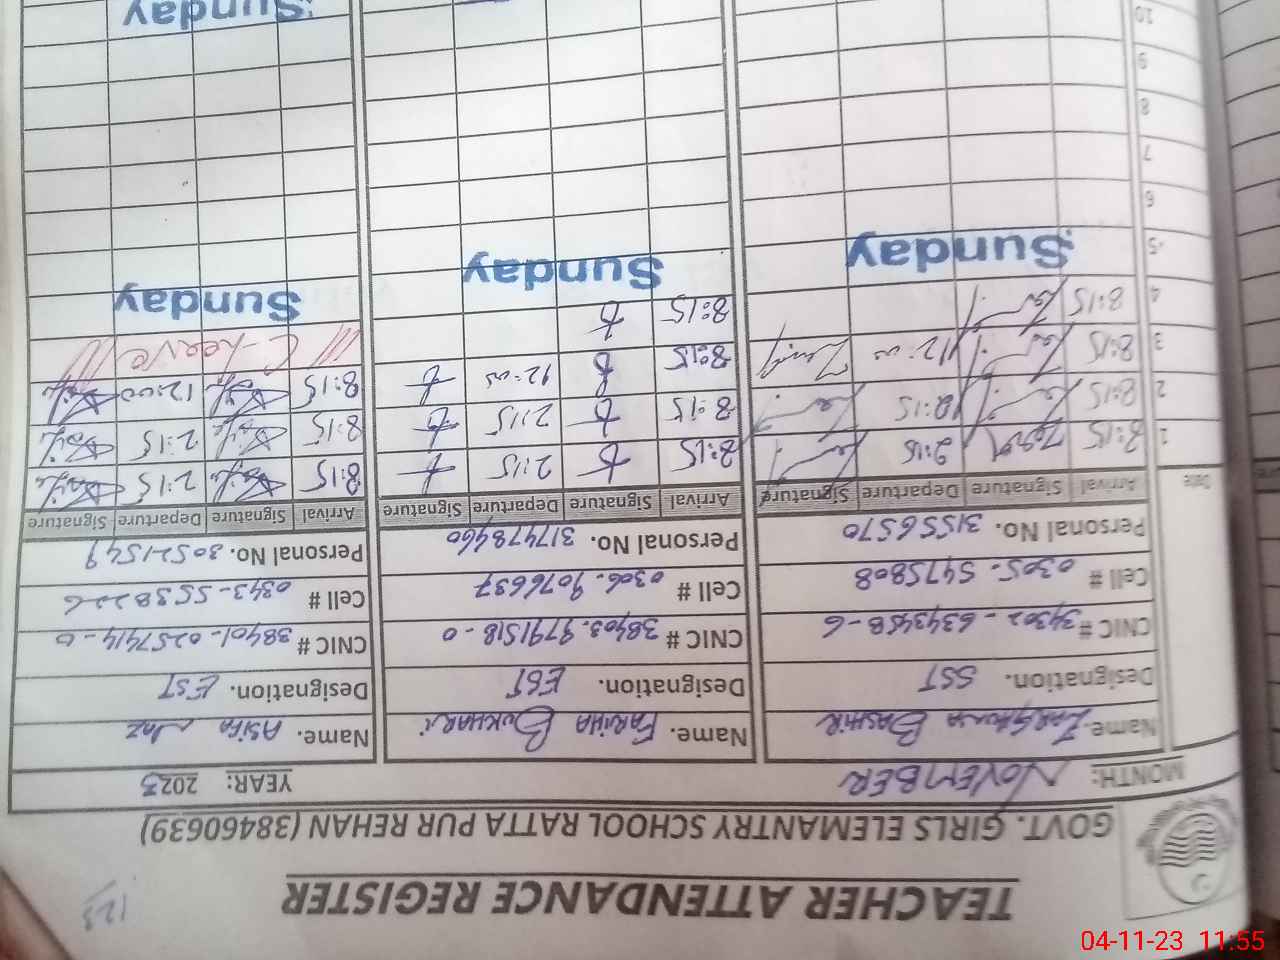 123
TEACHER ATTENDANCE REGISTER
GOVT. GIRLS ELEMANTRY SCHOOL RATTA PUR REHAN (38460639)
MONTH: NOVEMBER YEAR: 2023
Name. BASHIR Name. FARIHA BUKHARI Name. ASIFA NAZ
Designation. SST Designation. EST Designation. EST
CNIC # 34302-6343458-6 CNIC # 38403-9791518-0 CNIC # 38401-0257414-0
Cell # 0305-5475808 Cell # 0306-9076637 Cell # 0343-5538226
Personal No. 31556570 Personal No. 317478460 Personal No. 30521549
Date Arrival Signature Departure Signature Arrival Signature Departure Signature Arrival Signature Departure Signature
1 8:15 2:15 8:15 2:15 8:15 2:15
2 8:15 2:15 8:15 2:15 8:15 2:15
3 8:15 12:00 8:15 12:00 8:15 12:00
4 8:15 8:15 C-Leave
5 Sunday Sunday Sunday
6
7
8
9
10
Sunday
04-11-23 11:55